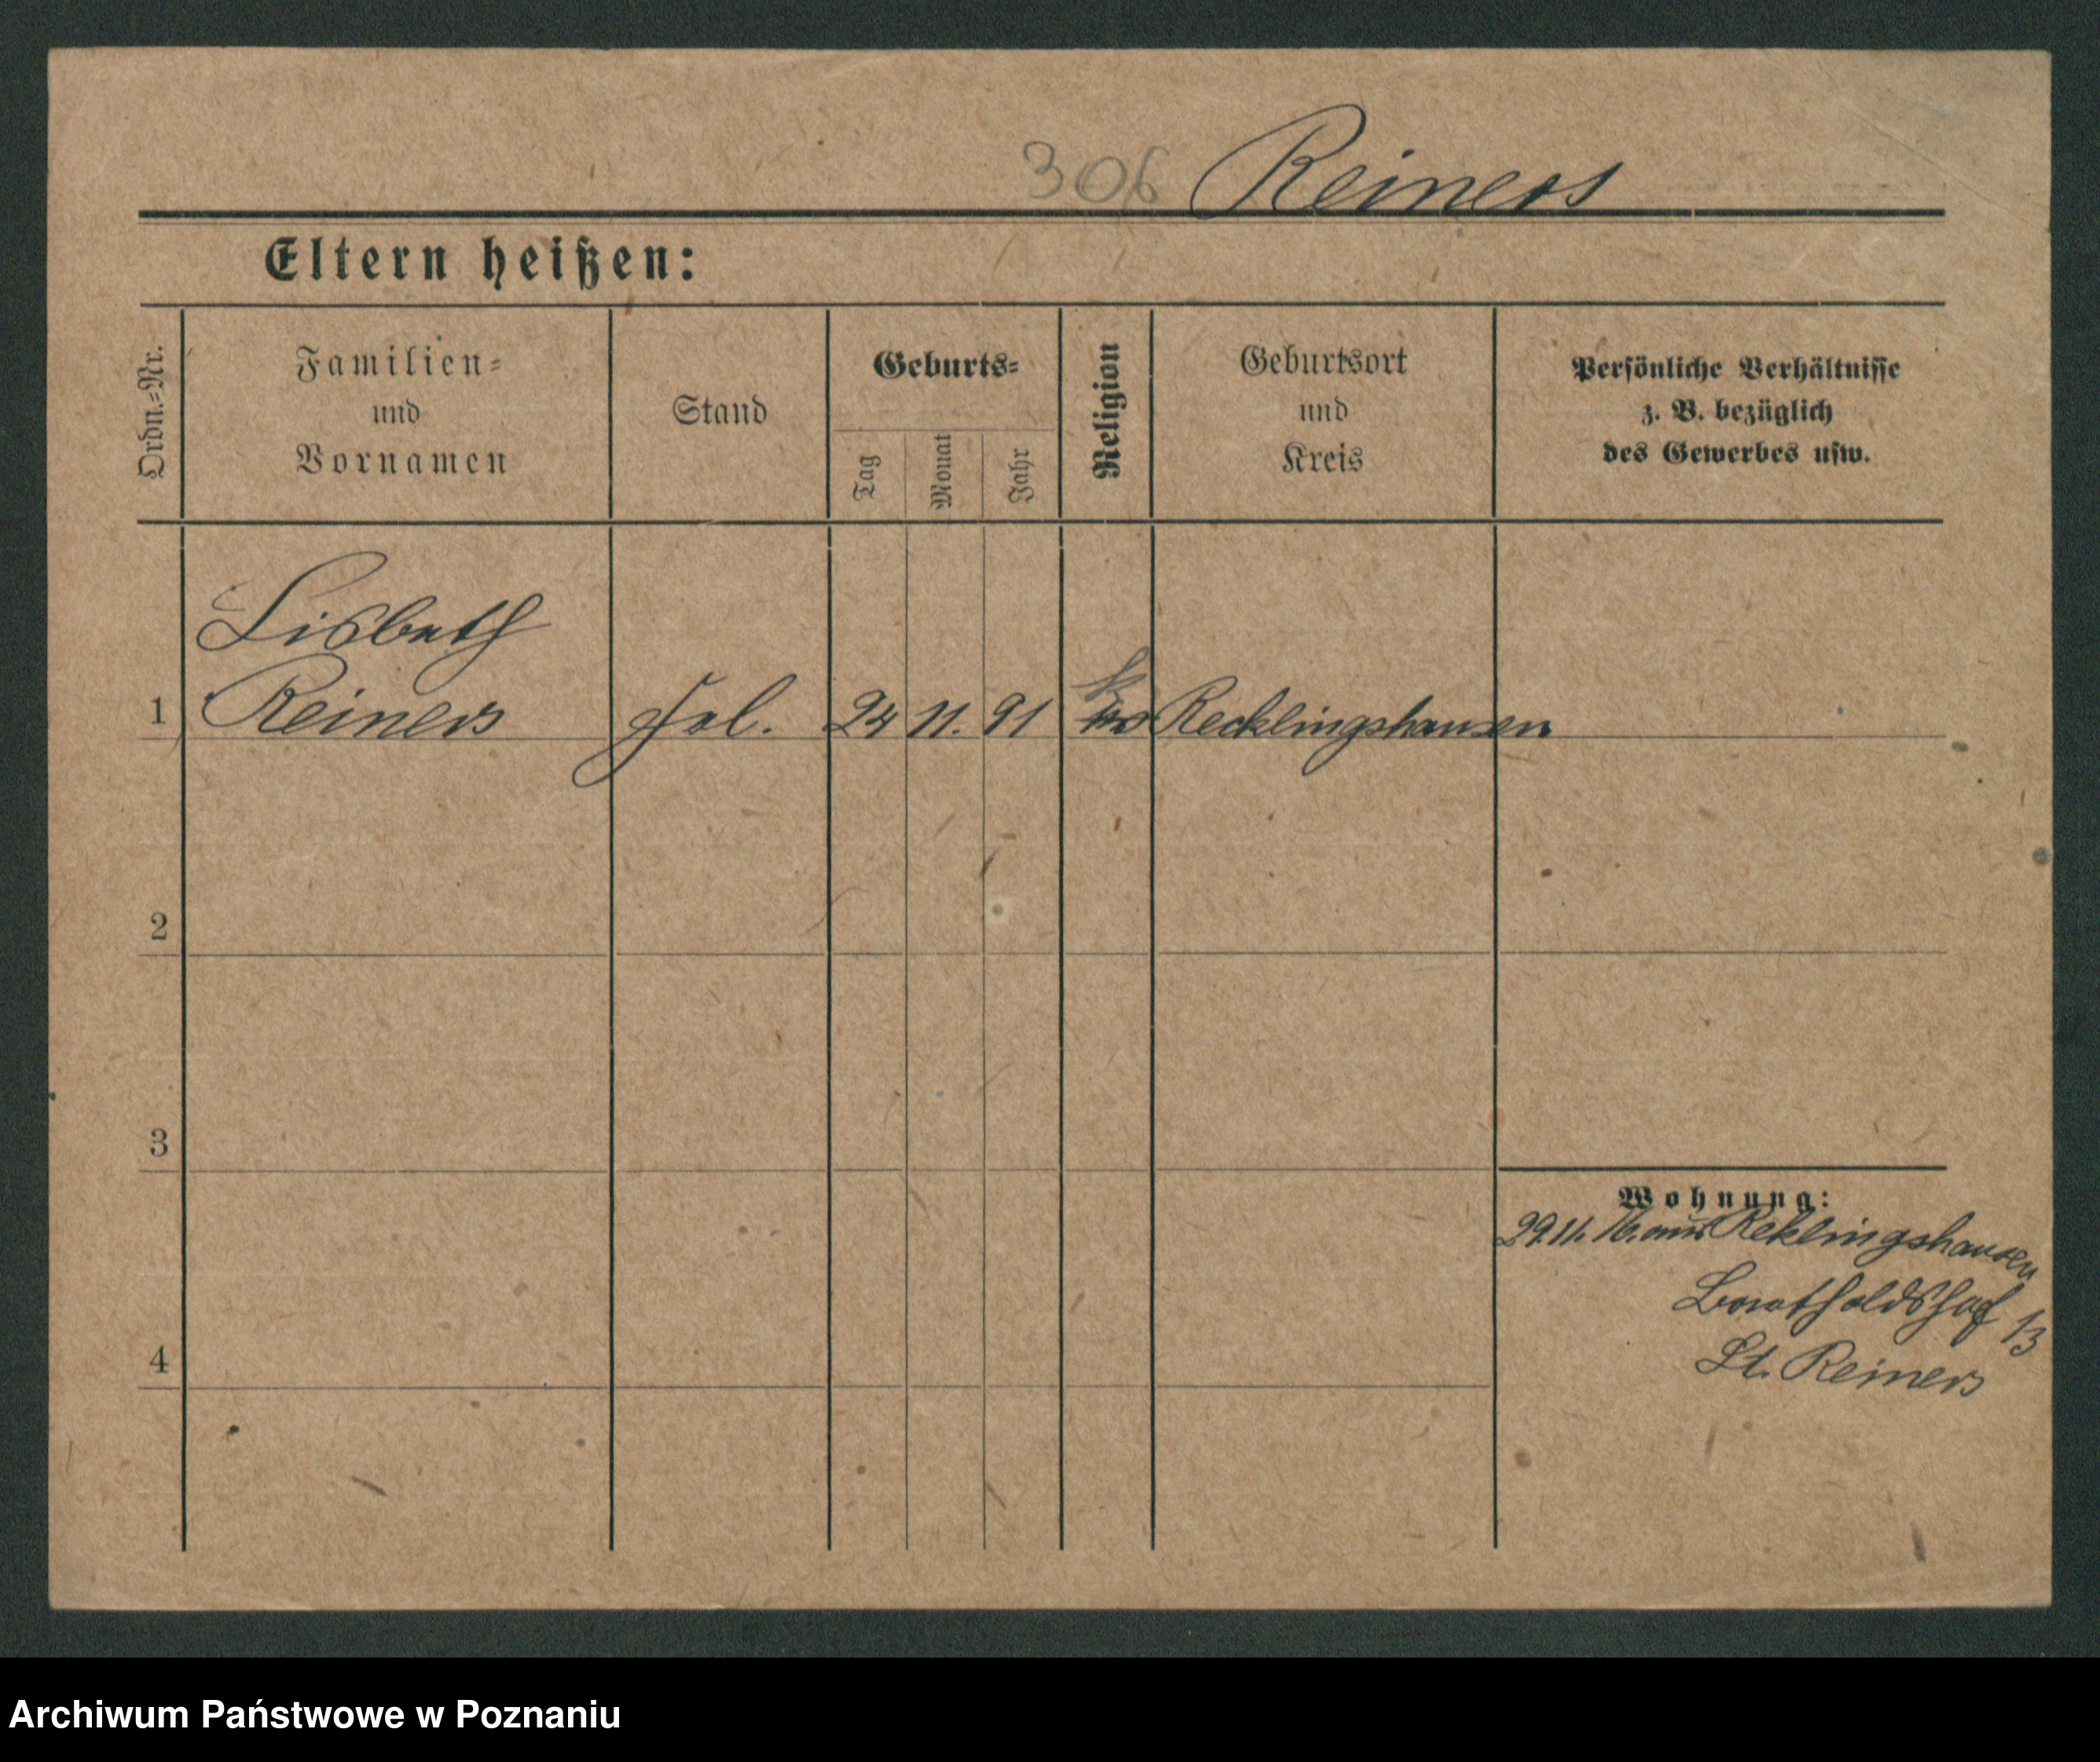 306 Reiners
Eltern heißen:
Ordn.-Nr.
Familien-
und
Vornamen
Stand
Geburts-
Tag
Monat
Jahr
Religion
Geburtsort
und
Kreis
Persönliche Verhältnisse
z. B. bezüglich
des Gewerbes usw.
Lisbeth
1 Reiners Frl. 24 11. 91 k Recklingshausen
2
3
4
Wohnung:
29.11.16. aus Reklingshausen
13
Lt. Reiners
Archiwum Państwowe w Poznaniu